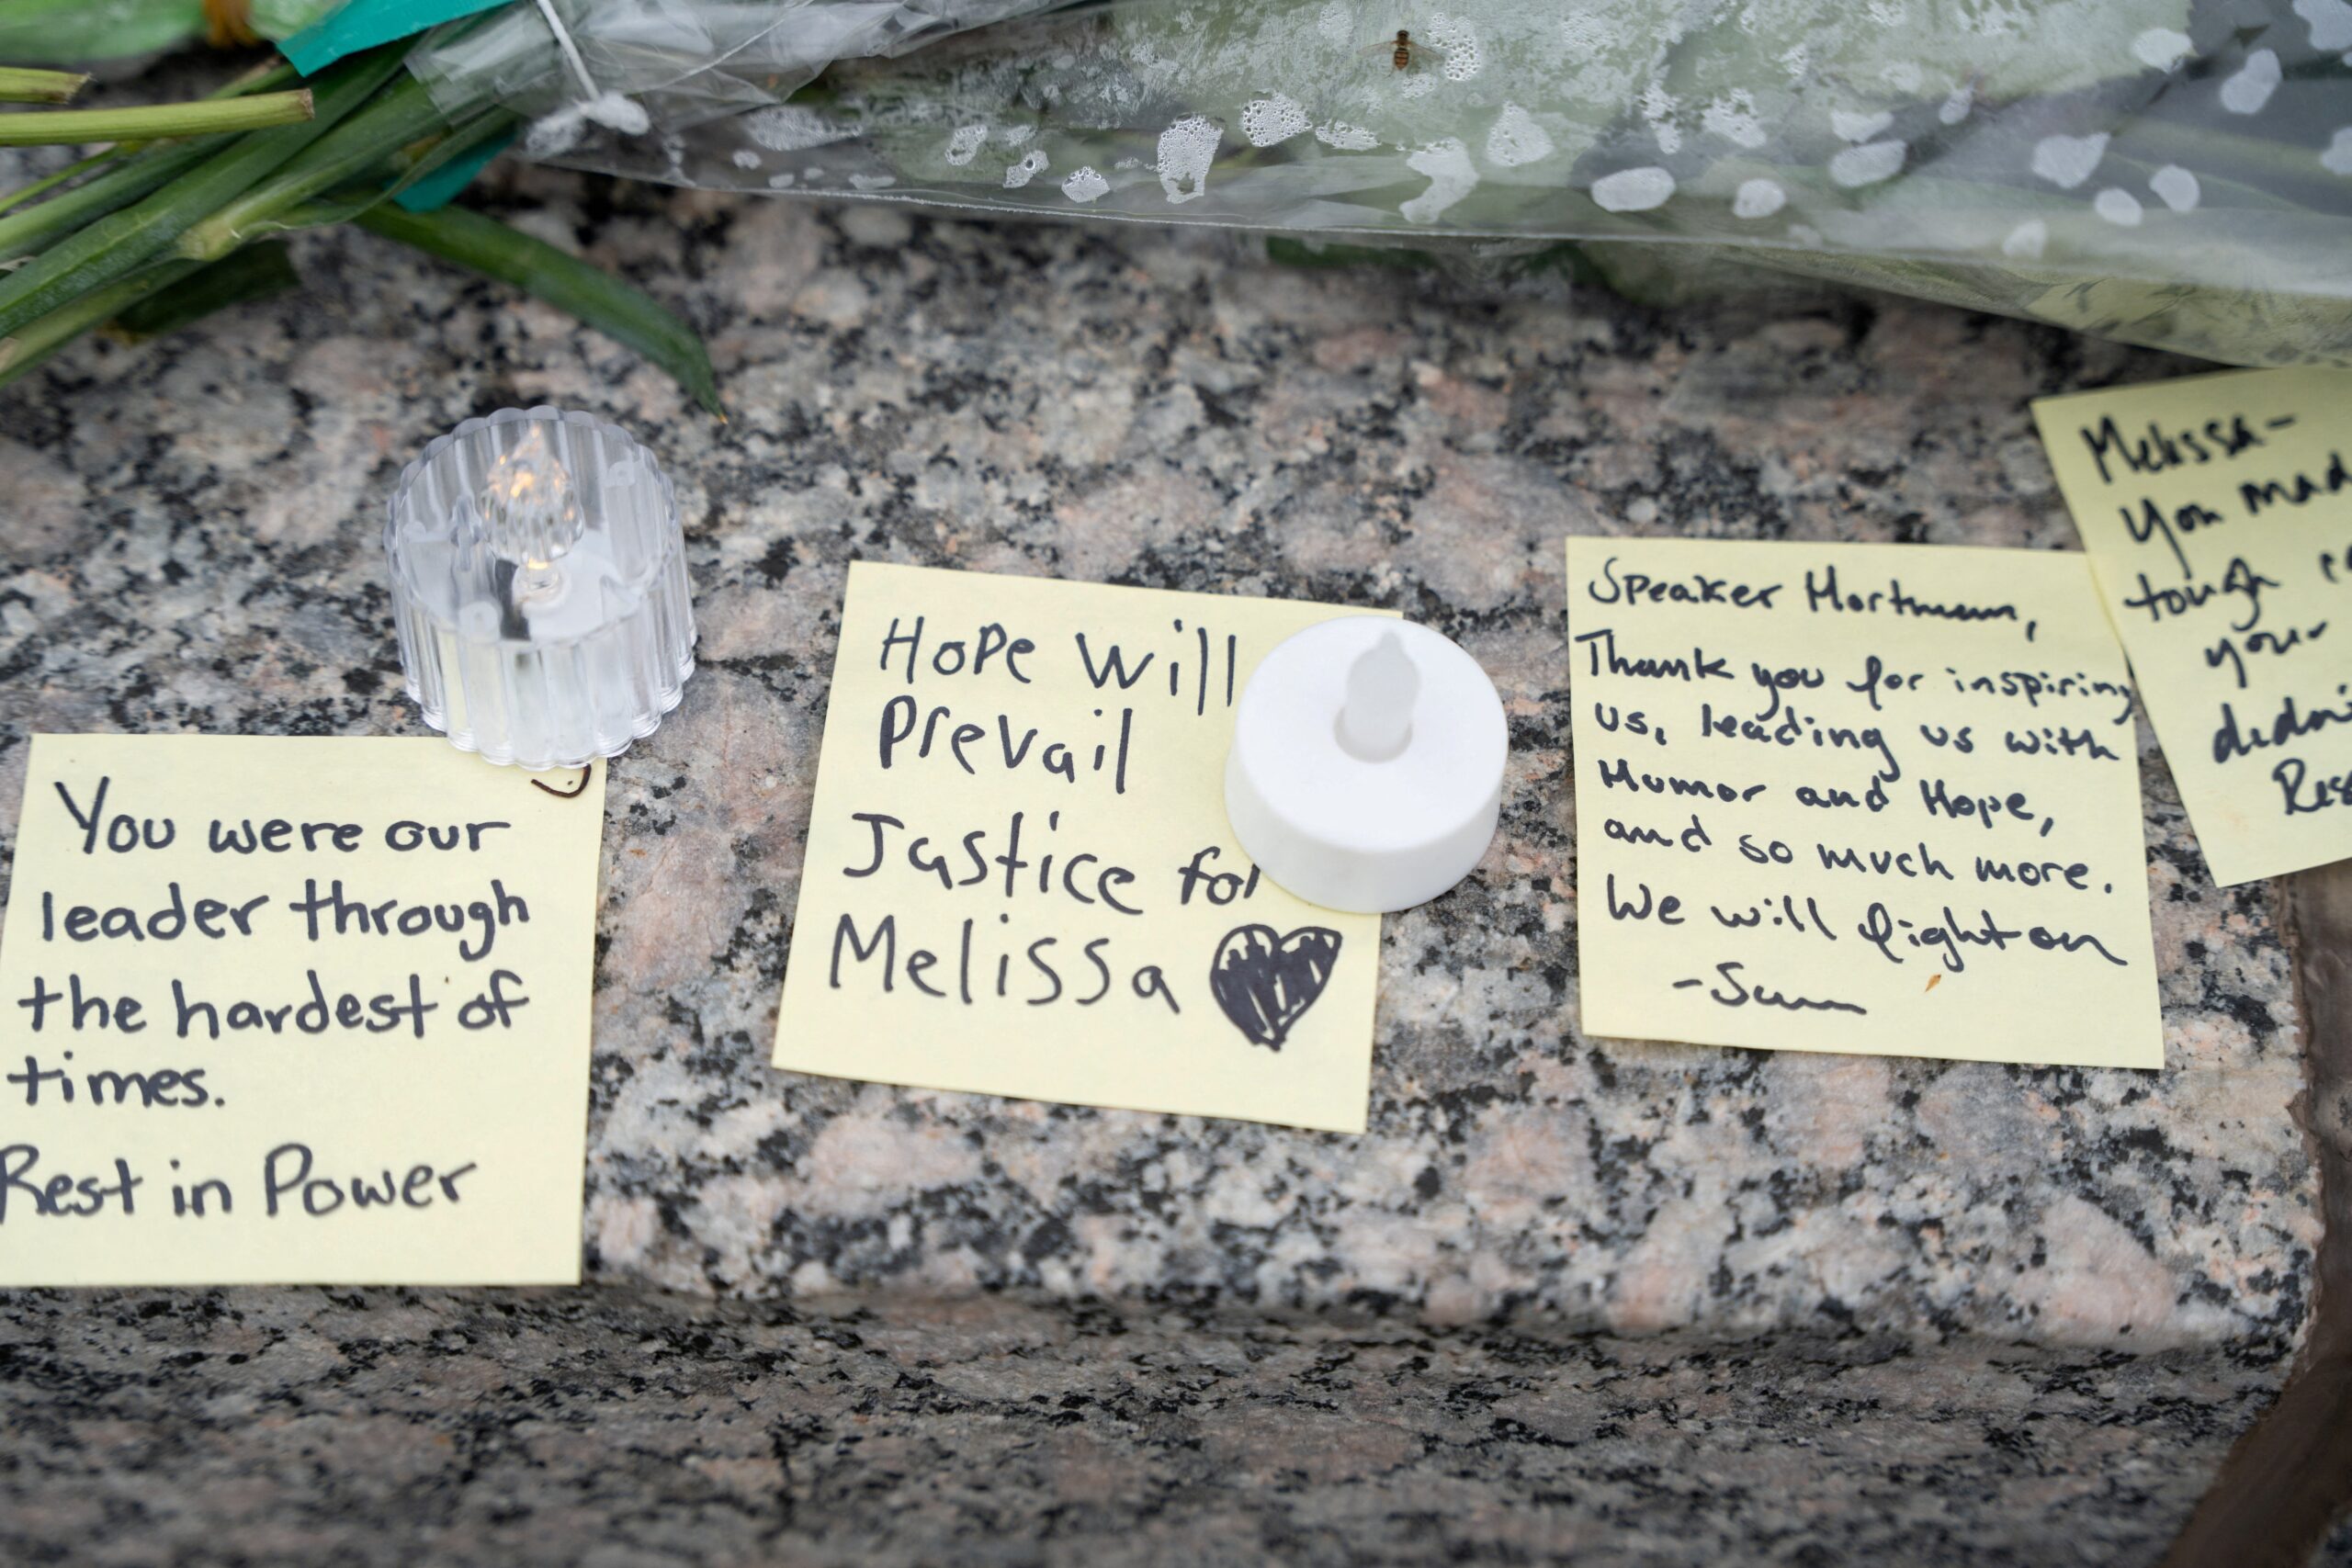 You were our
leader through
the hardest of
times.
Rest in Power
Hope Will
Prevail
Justice for
Melissa
Speaker Hortman,
Thank you for inspiring
us, leading us with
Humor and Hope,
and so much more.
We will fight on
-Sam
Melissa-
You mad
tough
your
didn'
Res